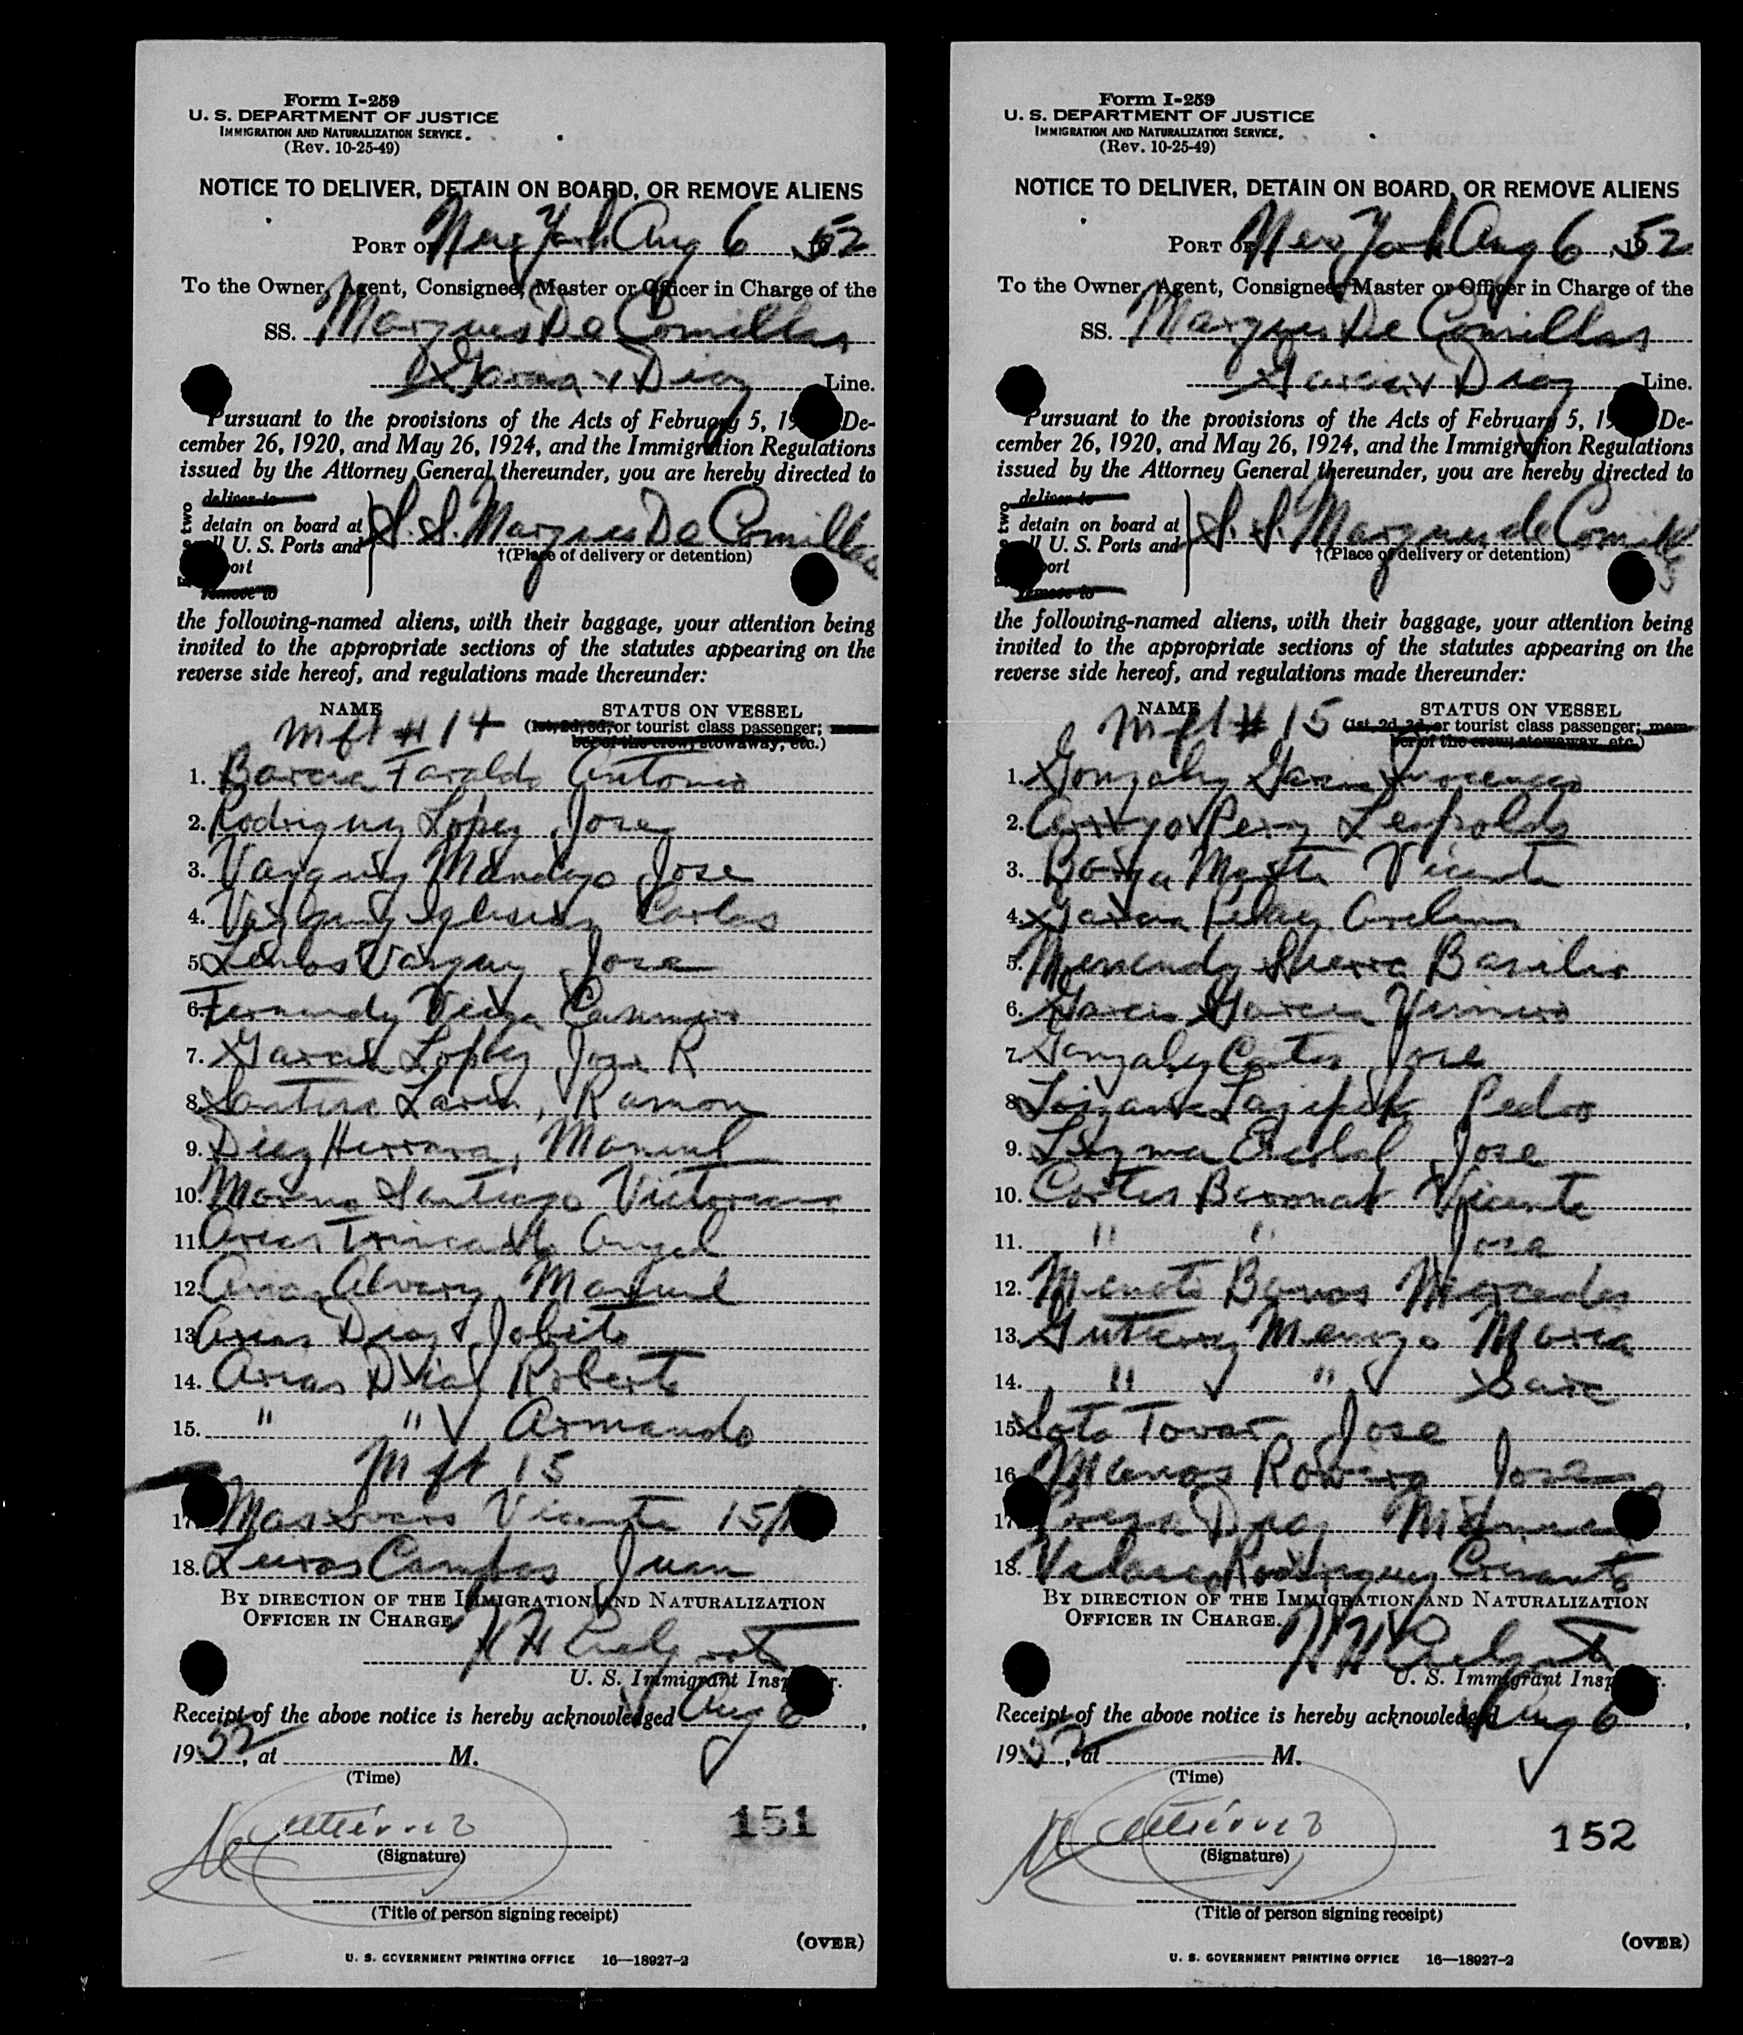 Form I-259
U. S. DEPARTMENT OF JUSTICE
IMMIGRATION AND NATURALIZATION SERVICE.
(Rev. 10-25-49)
NOTICE TO DELIVER, DETAIN ON BOARD, OR REMOVE ALIENS
PORT OF New York Aug 6, 1952
To the Owner, Agent, Consignee, Master or Officer in Charge of the
SS. Marques De Comillas
Garcia & Diaz Line.
Pursuant to the provisions of the Acts of February 5, 19 De-
cember 26, 1920, and May 26, 1924, and the Immigration Regulations
issued by the Attorney General thereunder, you are hereby directed to
deliver to
detain on board at S.S. Marques De Comillas
U. S. Ports and †(Place of delivery or detention)
port
remove to
the following-named aliens, with their baggage, your attention being
invited to the appropriate sections of the statutes appearing on the
reverse side hereof, and regulations made thereunder:
NAME STATUS ON VESSEL
Mft # 14 (1st, 2d, 3d, or tourist class passenger; mem-
ber of the crew, stowaway, etc.)
1. Barcia Faraldo Antonio
2. Rodriguez Lopez Jose
3. Jose
4. Iglesias Carlos
5. Lemos Jose
6. Fernandez Veiga Casimiro
7. Garcia Lopez Jose R
8. Ramon
9. Diez Herrera, Manuel
10. Moreno Santiago Victoriano
11. Arias Angel
12. Arias Alvarez Manuel
13. Arias Diaz Jobita
14. Arias Diaz Roberto
15. " " Armando
Mft 15
17. Vicente 15/
18. Campos Juan
BY DIRECTION OF THE IMMIGRATION AND NATURALIZATION
OFFICER IN CHARGE.
H H
U. S. Immigrant Insp r.
Receipt of the above notice is hereby acknowledged Aug 6,
1952, at M.
(Time)
M Gutierrez
(Signature)
151
(Title of person signing receipt)
(OVER)
U. S. GOVERNMENT PRINTING OFFICE 16—18927-2
Form I-259
U. S. DEPARTMENT OF JUSTICE
IMMIGRATION AND NATURALIZATION SERVICE.
(Rev. 10-25-49)
NOTICE TO DELIVER, DETAIN ON BOARD, OR REMOVE ALIENS
PORT OF New York Aug 6, 1952
To the Owner, Agent, Consignee, Master or Officer in Charge of the
SS. Marques De Comillas
Garcia & Diaz Line.
Pursuant to the provisions of the Acts of February 5, 19 De-
cember 26, 1920, and May 26, 1924, and the Immigration Regulations
issued by the Attorney General thereunder, you are hereby directed to
deliver to
detain on board at S. S. Marques de Comillas
U. S. Ports and †(Place of delivery or detention)
port
remove to
the following-named aliens, with their baggage, your attention being
invited to the appropriate sections of the statutes appearing on the
reverse side hereof, and regulations made thereunder:
NAME STATUS ON VESSEL
Mft # 15 (1st, 2d, 3d, or tourist class passenger; mem-
ber of the crew, stowaway, etc.)
1. Gonzalez Garcia Inocencio
2. Arroyo Perez Leopoldo
3. Vicente
4. Garcia Perez
5. Menendez Sierra Basilio
6. Garcia Garcia
7. Gonzalez Cortes Jose
8. Pedro
9. Jose
10. Cortes Baronat Vicente
11. " " Jose
12. Mercedes
13. Gutierrez Maria
14. " " Sara
15. Soto Tovar Jose
16. Jose
17. Diaz
18. Velasco Rodriguez
BY DIRECTION OF THE IMMIGRATION AND NATURALIZATION
OFFICER IN CHARGE.
H H
U. S. Immigrant Insp r.
Receipt of the above notice is hereby acknowledged Aug 6,
1952, at M.
(Time)
M Gutierrez
(Signature)
152
(Title of person signing receipt)
(OVER)
U. S. GOVERNMENT PRINTING OFFICE 16—18927-2